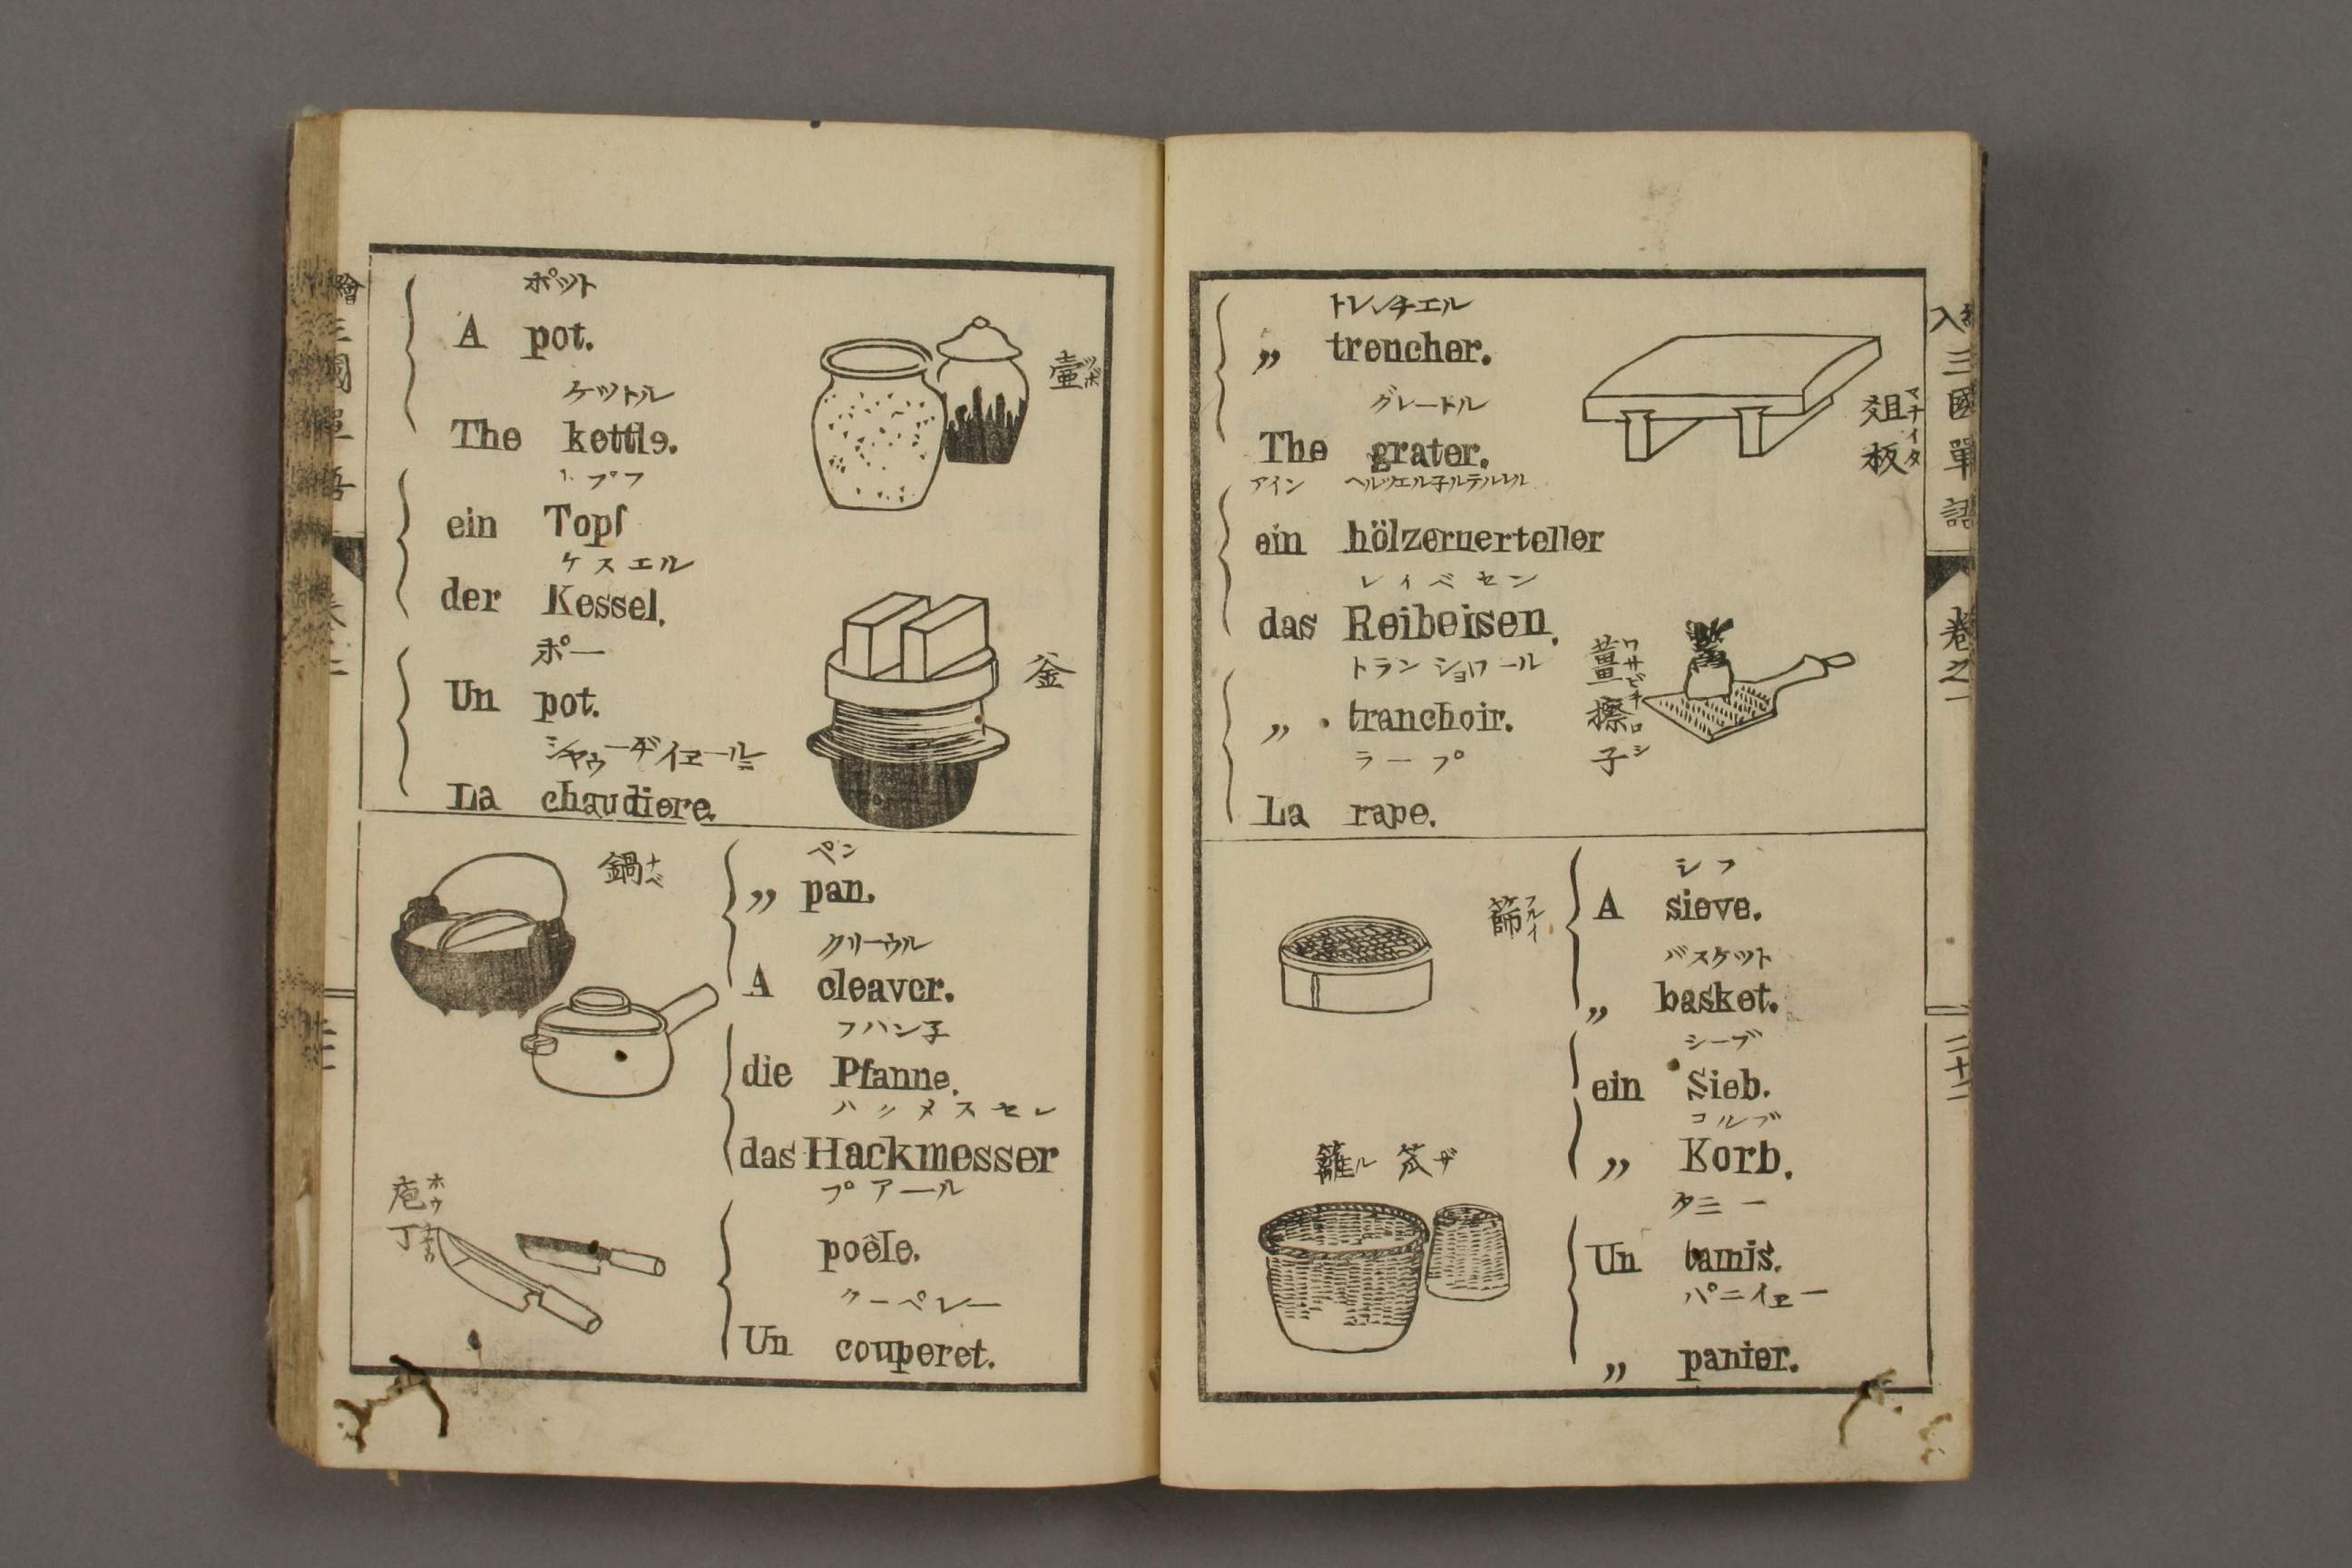 ポット
A pot.
ケットル
The kettle.
トプフ
ein Topf
ケスエル
der Kessel.
ポー
Un pot.
シャウーヂイエール
La chaudiere.
壷 ツボ
釜
鍋 ナベ
庖丁
ペン
„ pan.
クリーウル
A cleaver.
フハン子
die Pfanne.
ハックメスセレ
das Hackmesser
プアール
poêle.
クーペレー
Un couperet.
トレンチエル
„ trencher.
グレートル
The grater.
アイン ヘルツエル子ルテルレル
ein hölzernerteller
レイベセン
das Reibeisen.
トランショワール
„ tranchoir.
ラープ
La rape.
爼板 マナイタ
薑擦子 ワサビオロシ
篩 フルイ
笊籬 ザル
シフ
A sieve.
バスケット
„ basket.
シーブ
ein Sieb.
コルブ
„ Korb.
タミー
Un tamis.
パニイエー
„ panier.
入三國單語
卷之一
二十二